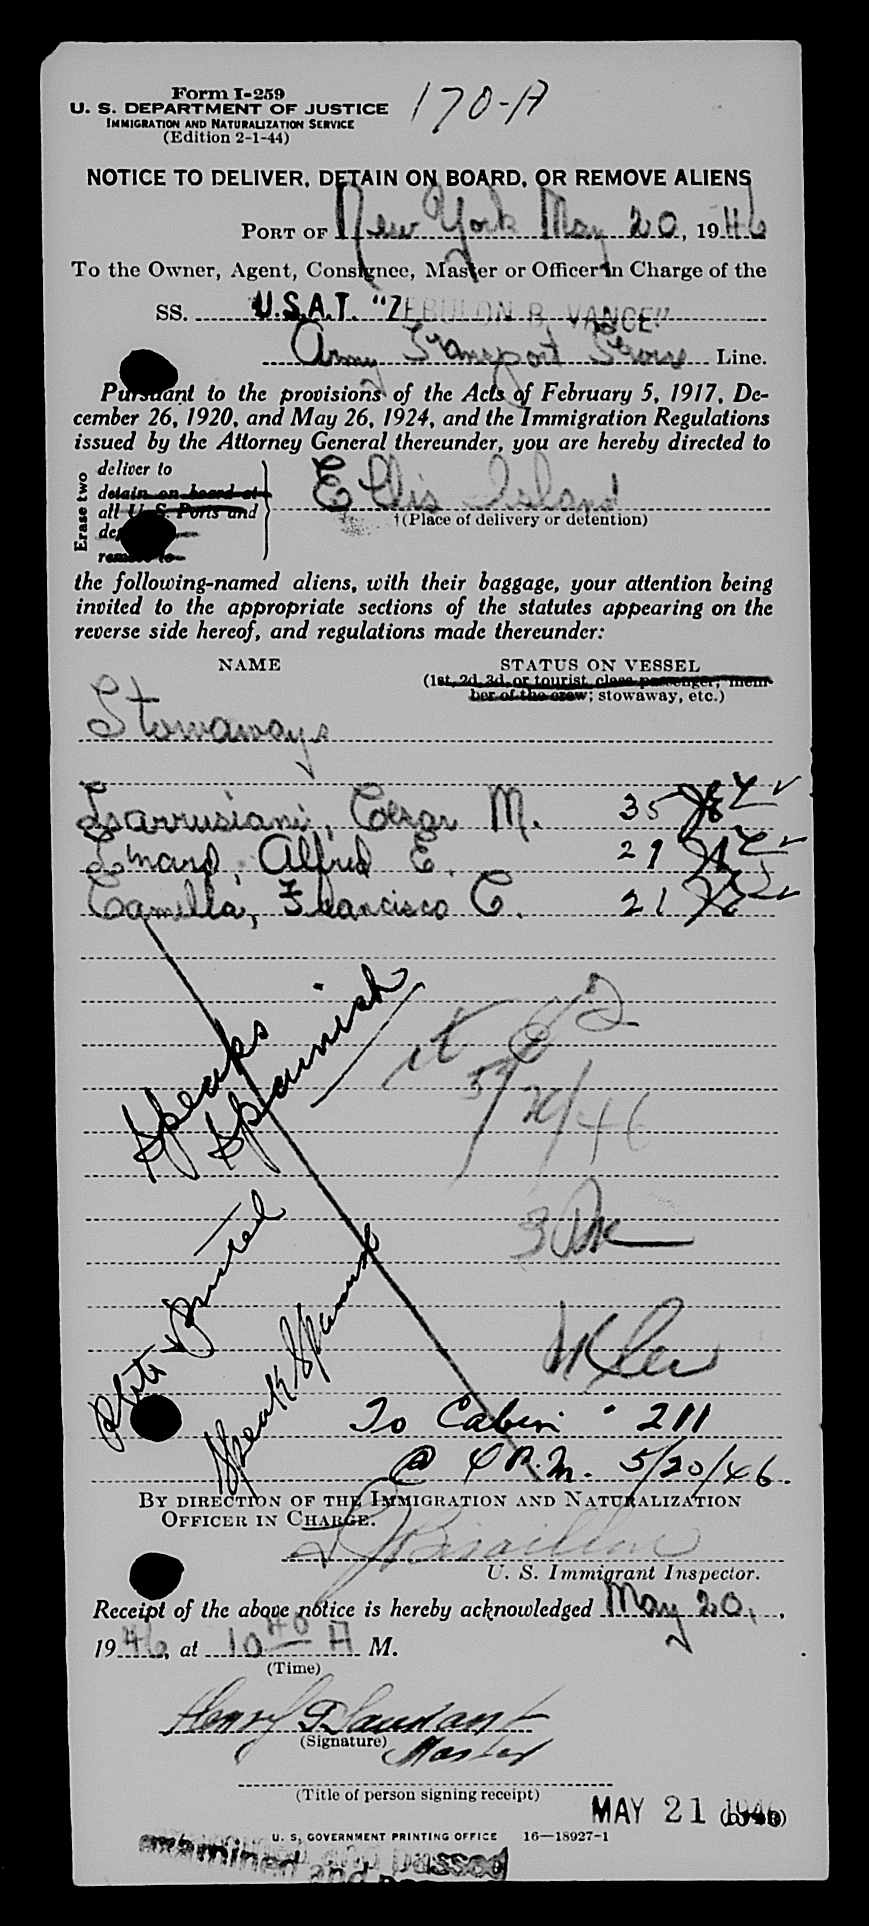 Form I-259
170-A
U. S. DEPARTMENT OF JUSTICE
IMMIGRATION AND NATURALIZATION SERVICE
(Edition 2-1-44)
NOTICE TO DELIVER, DETAIN ON BOARD, OR REMOVE ALIENS
PORT OF New York May 20, 1946
To the Owner, Agent, Consignee, Master or Officer in Charge of the
SS. U.S.A.T. "ZEBULON B. VANCE"
Army Transport Line.
Pursuant to the provisions of the Acts of February 5, 1917, De-
cember 26, 1920, and May 26, 1924, and the Immigration Regulations
issued by the Attorney General thereunder, you are hereby directed to
Erase two
deliver to
detain on board at
all U. S. Ports and
remove to
Ellis Island
†(Place of delivery or detention)
the following-named aliens, with their baggage, your attention being
invited to the appropriate sections of the statutes appearing on the
reverse side hereof, and regulations made thereunder:
NAME STATUS ON VESSEL
(1st, 2d, 3d, or tourist class passenger, mem-
ber of the crew; stowaway, etc.)
Stowaways
Cesar M. 35
Alfred E. 29
Camella, Francisco C. 21
Speaks
Spainish
5/20/46
Speak Spanish
To Cabin 211
@ 4 P.M. 5/20/46.
BY DIRECTION OF THE IMMIGRATION AND NATURALIZATION
OFFICER IN CHARGE.
U. S. Immigrant Inspector.
Receipt of the above notice is hereby acknowledged May 20,
1946, at 10 40 A M.
(Time)
Henry
(Signature)
Master
(Title of person signing receipt)
MAY 21 1946
U. S. GOVERNMENT PRINTING OFFICE 16—18927-1
examined and passed